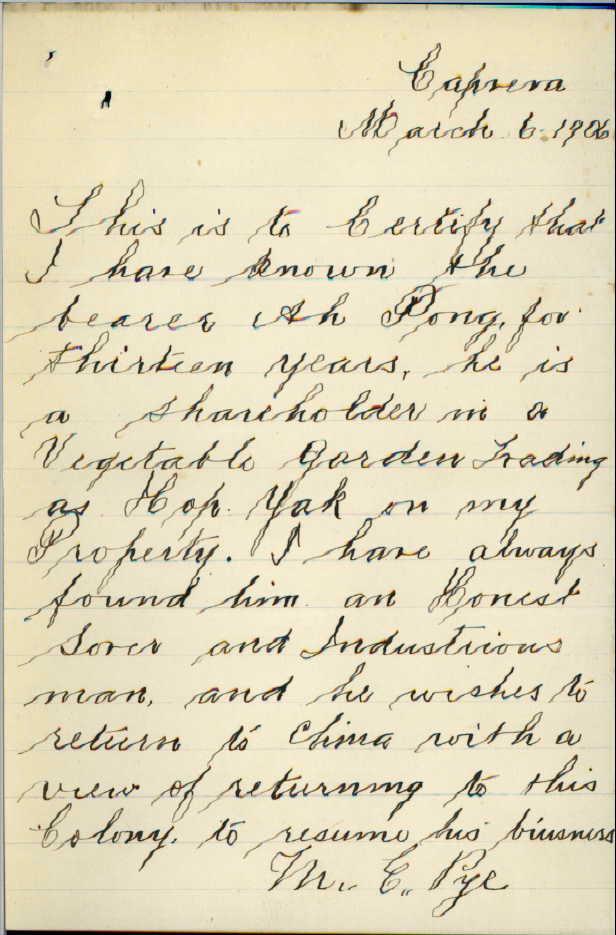 Caprera
March 6 1906
This is to Certify that
I have known the
bearer Ah Pong, for
thirteen years, he is
a shareholder in a
Vegetable Garden Trading
as Hop. Yak on my
Property. I have always
found him an Honest
Sover and Industrious
man, and he wishes to
return to China with a
view of returning to this
Colony. to resume his biusness
M. E. Pye